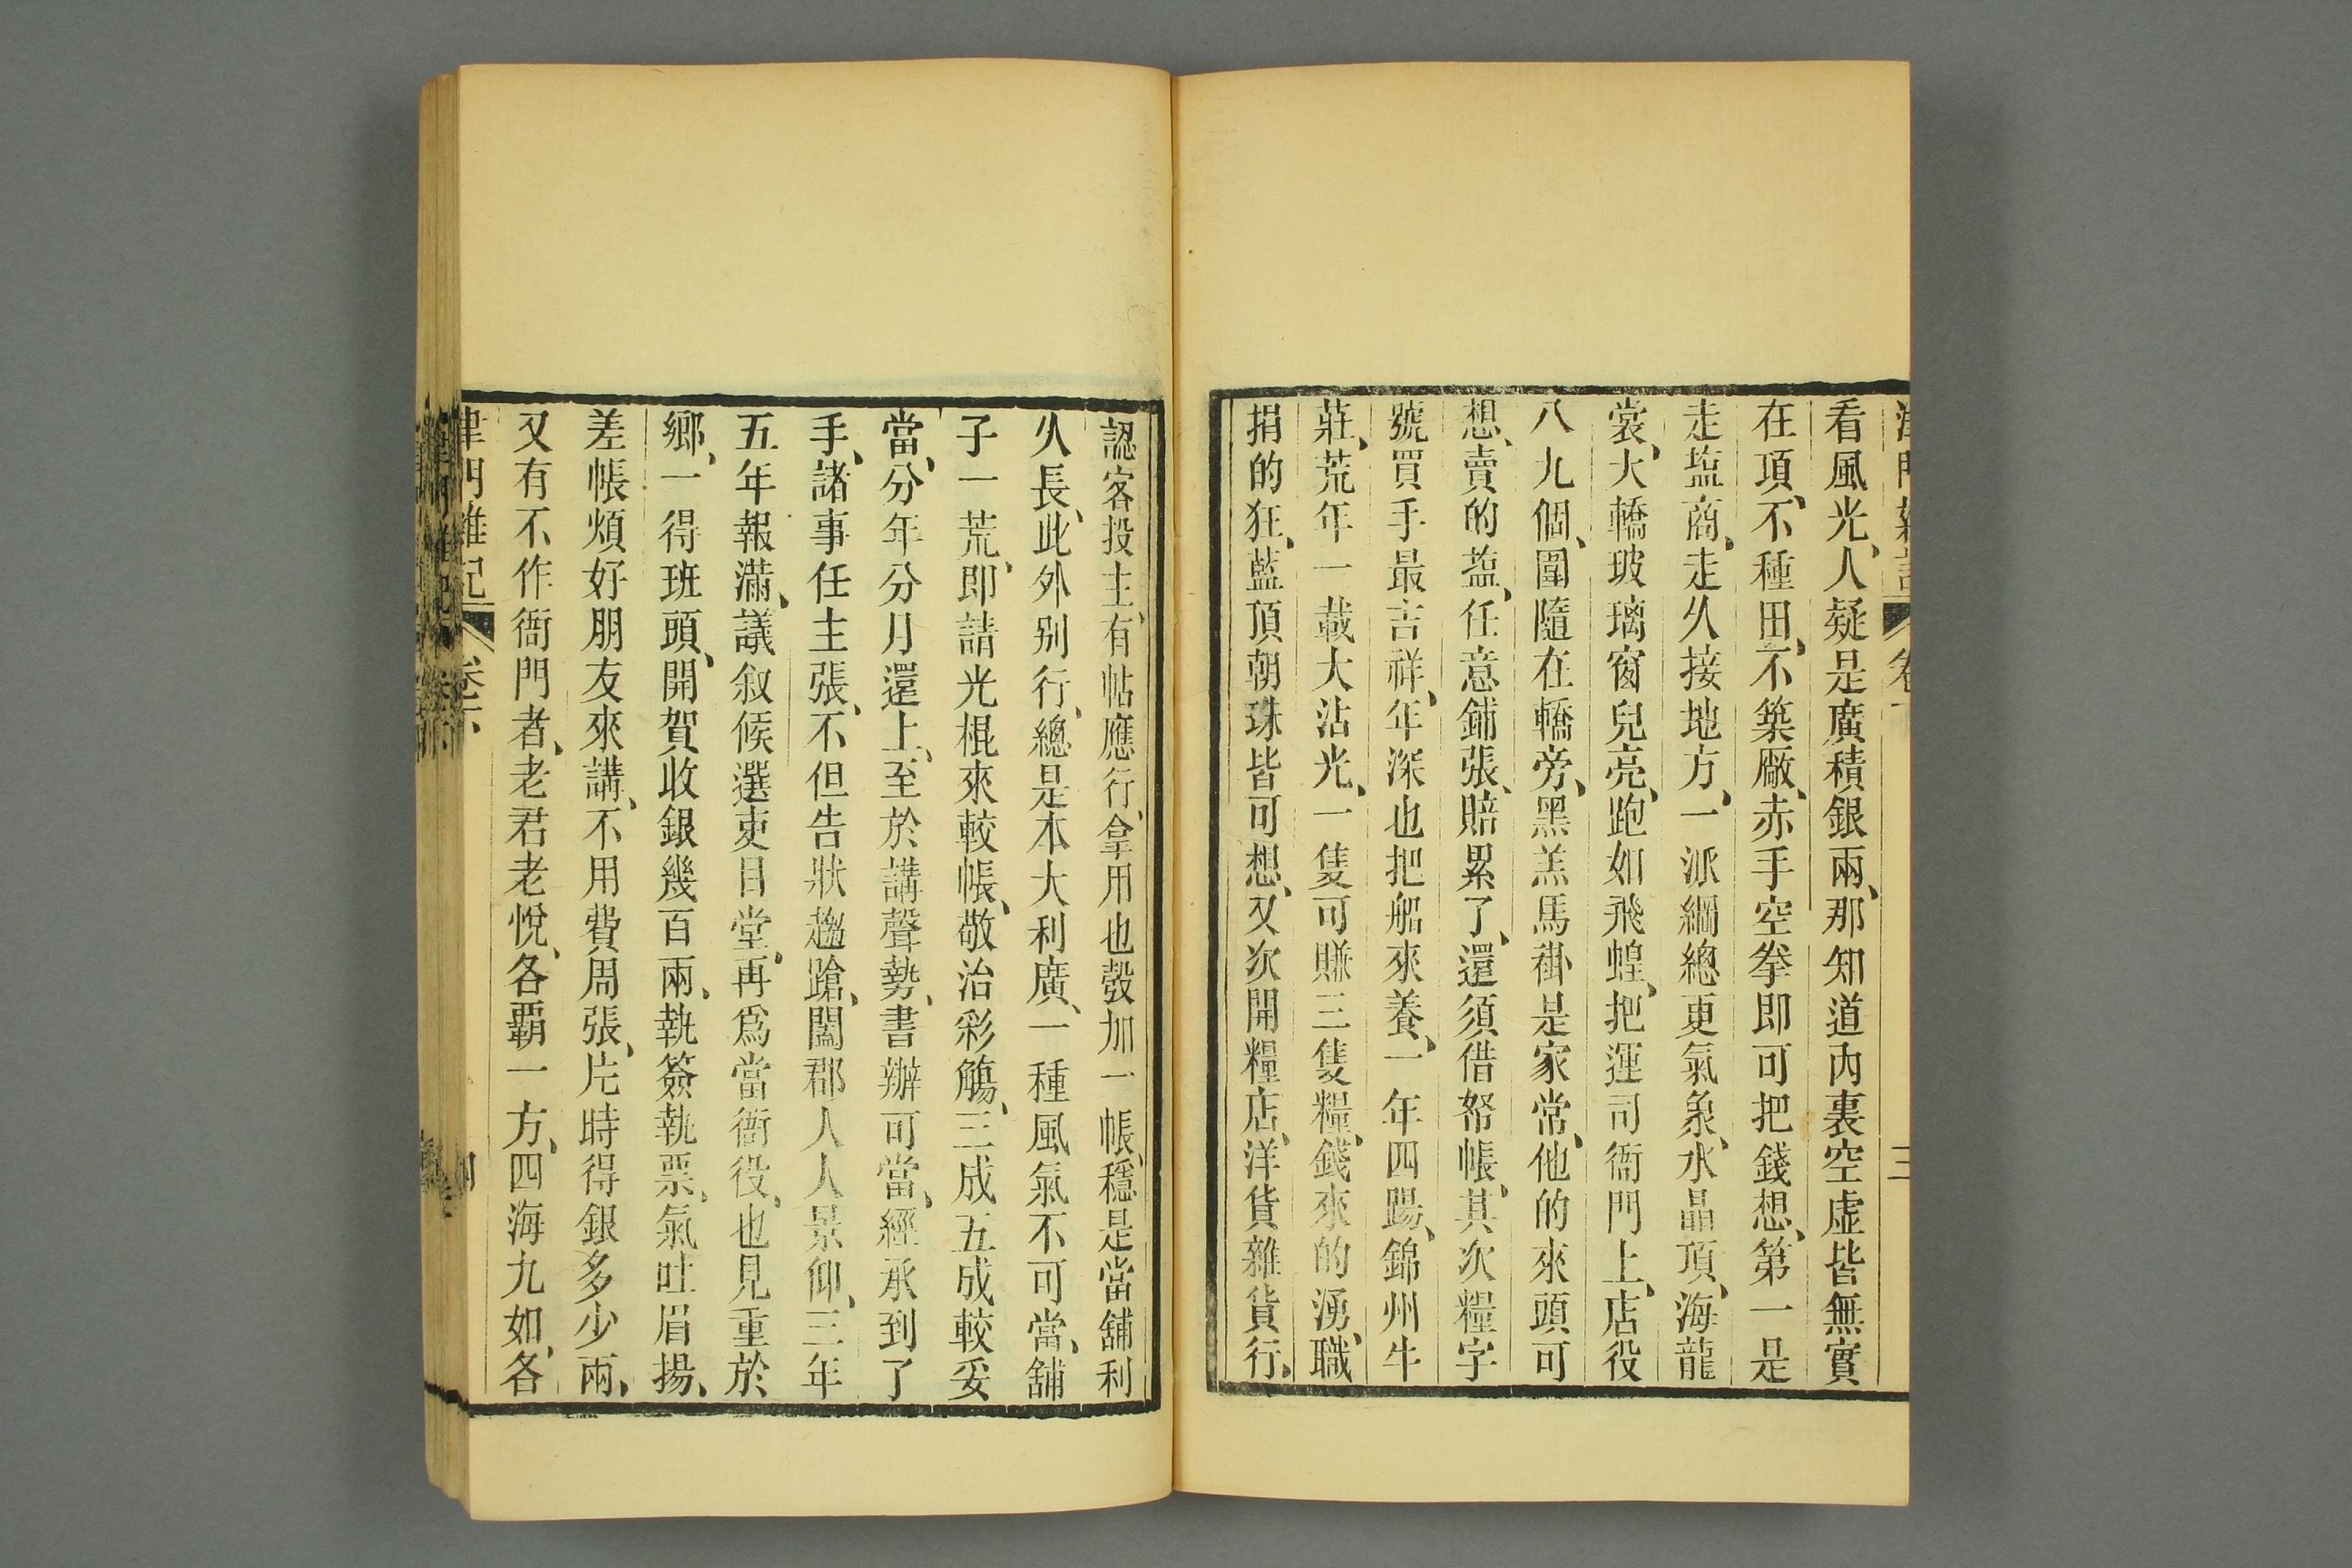 看風光、人疑是廣積銀兩、那知道內裏空虛皆無實
在項、不種田、不築廠、赤手空拳即可把錢想、第一是
走塩商、走久接地方、一派綱總更氣象、水晶頂、海龍
裳、大轎玻璃窗兒亮、跑如飛蝗、把運司衙門上、店役
八九個、圍隨在轎旁、黑羔馬褂是家常、他的來頭可
想、賣的塩、任意鋪張、賠累了、還須借帑帳、其次糧字
號買手最吉祥、年深也把船來養、一年四踢、錦州牛
莊、荒年一載大沾光、一隻可賺三隻糧、錢來的湧、職
捐的狂、藍頂朝珠皆可想、又次開糧店、洋貨雜貨行、
認客投主、有帖應行、拿用也彀加一帳、穩是當舖利
久長、此外別行、總是本大利廣、一種風氣不可當、舖
子一荒、即請光棍來較帳、敬治彩觴、三成五成較妥
當、分年分月還上、至於講聲勢、書辦可當、經承到了
手、諸事任主張、不但告狀趨蹌、闔郡人人景仰、三年
五年報滿、議叙候選吏目堂、再爲當衙役、也見重於
鄉、一得班頭、開賀收銀幾百兩、執簽執票、氣吐眉揚、
差帳煩好朋友來講、不用費周張、片時得銀多少兩、
又有不作衙門者、老君老悅、各覇一方、四海九如、各
津門雜記 卷下 四